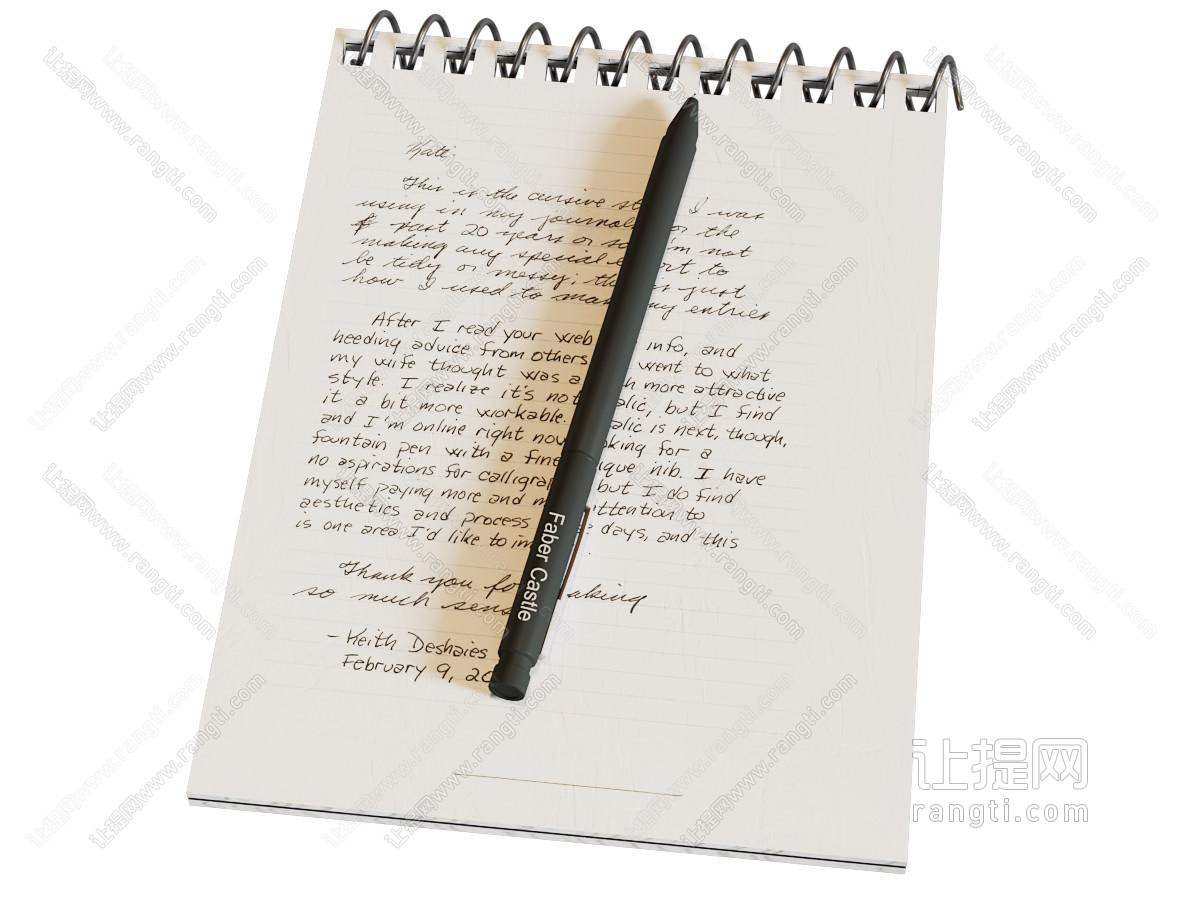 Kate,
This is the cursive st I was
using in my journal or the
past 20 years or so 'm not
making any special e rt to
be tidy or messy; th s just
how I used to ma my entries
After I read your web info, and
needing advice from others went to what
my wife thought was a h more attractive
style. I realize it's not alic, but I find
it a bit more workable. alic is next, though,
and I'm online right now oking for a
fountain pen with a fine ique nib. I have
no aspirations for calligra but I do find
myself paying more and m ttention to
aesthetics and process e days, and this
is one area I'd like to im
Thank you fo aking
so much sens
- Keith Deshaies
February 9, 20
Faber Castle
让提网
rangti.com
让提网www.rangti.com